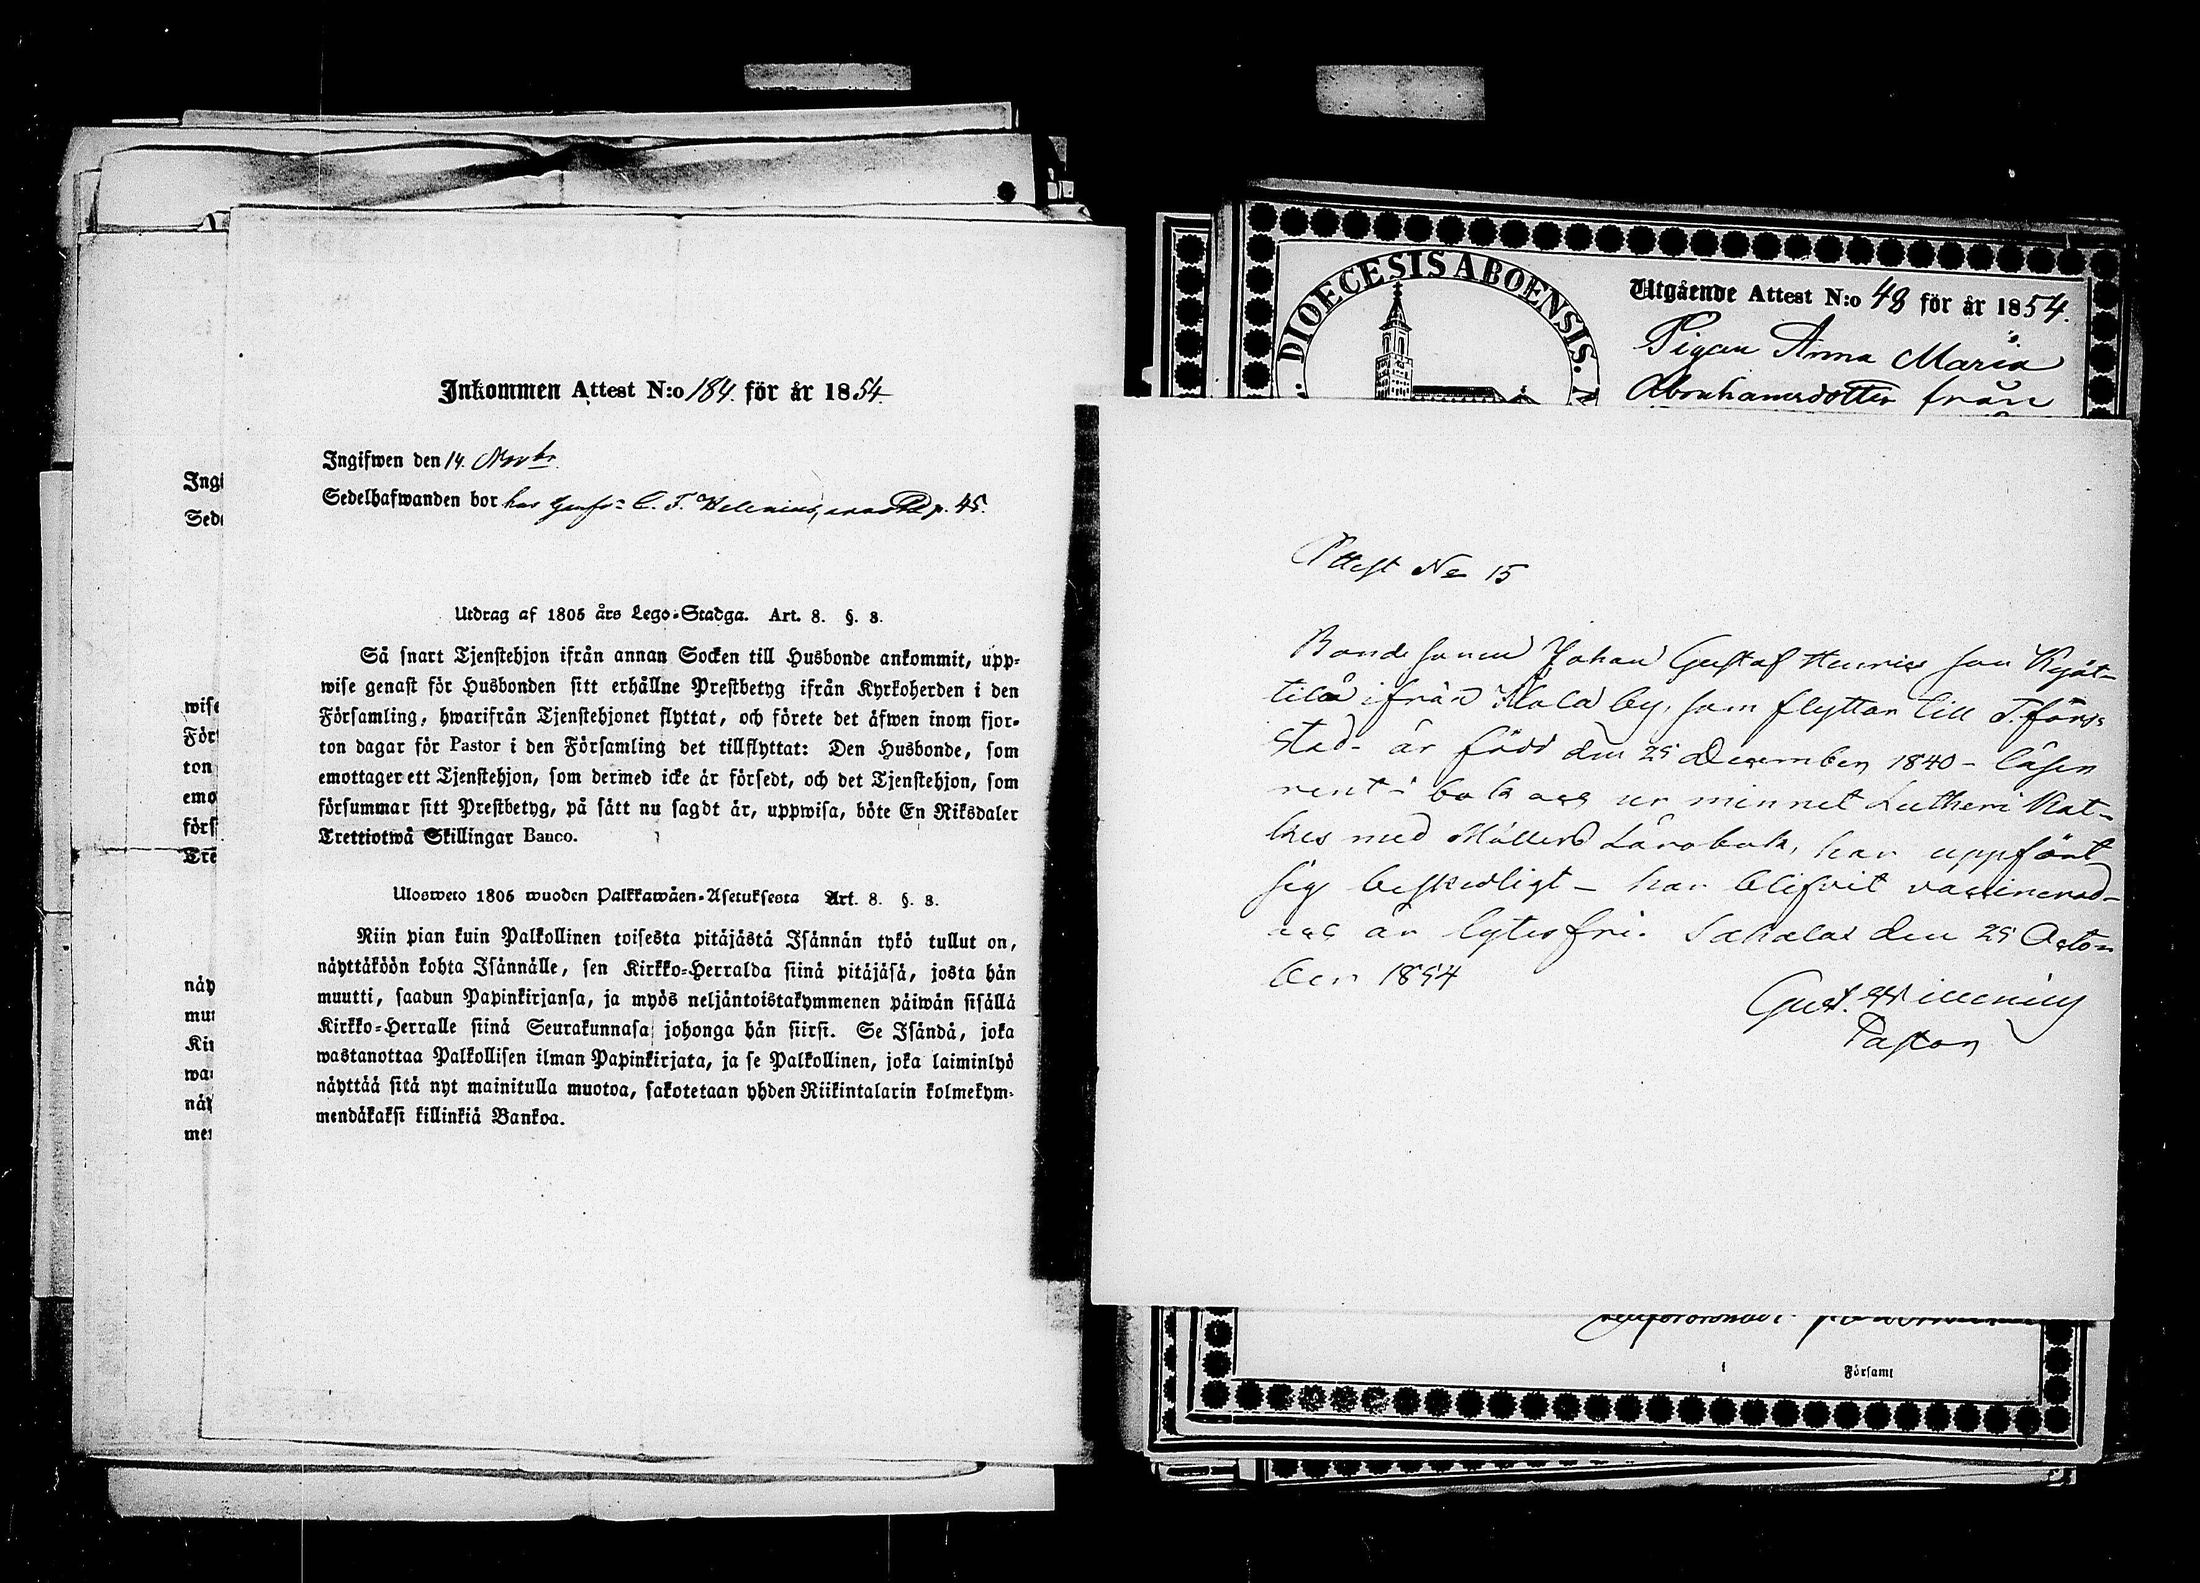 Inkommen Attest N:o 184. för år 1854.
Ingifwen den 14. Novbr.
Sedelhafwanden bor hos C. F. Helenius, p. 45.
Utdrag af 1805 års Lego-Stadga. Art. 8. §. 8.
Så snart Tjenstehjon ifrån annan Socken till Husbonde ankommit, upp-
wise genast för Husbonden sitt erhållne Prestbetyg ifrån Kyrkoherden i den
Församling, hwarifrån Tjenstehjonet flyttat, och förete det äfwen inom fjor-
ton dagar för Pastor i den Församling det tillflyttat: Den Husbonde, som
emottager ett Tjenstehjon, som dermed icke är försedt, och det Tjenstehjon, som
försummar sitt Prestbetyg, på sätt nu sagdt är, uppwisa, böte En Riksdaler
Trettiotwå Skillingar Banco.
Ulosweto 1805 wuoden Palkkawäen-Asetuksesta Art. 8. §. 8.
Niin pian kuin Palkollinen toisesta pitäjästä Isännän tykö tullut on,
näyttäköön kohta Isännälle, sen Kirkko-Herralda siinä pitäjäsä, josta hän
muutti, saadun Papinkirjansa, ja myös neljäntoistakymmenen päiwän sisällä
Kirkko-Herralle siinä Seurakunnasa johonga hän siirsi. Se Isändä, joka
wastanottaa Palkollisen ilman Papinkirjata, ja se Palkollinen, joka laiminlyö
näyttää sitä nyt mainitulla muotoa, sakotetaan yhden Riikintalarin kolmekym-
mendäkaksi killinkiä Bankoa.
Ingi
Sede
wise
För
ton
emo
förs
Tre
näy
muu
Kir
wa
näy
men
DIOECESIS ABOENSIS.
Utgående Attest N:o 48 för år 1854.
Pigan Anna Maria
Abrahamsdotter från
Attest No 15
Bondesonen Johan Gustaf Henrics son Kyät-
tilä ifrån Kola by, som flyttar till T.fors
stad - är född den 25 December 1840 - läser
rent i bok och ur minnet Lutheri Kat-
kes med Möllers Lärobok, har uppfört
sig beskedligt - har blifvit vaccinerad -
och är lytesfri. Sahalax den 25 Octo-
ber 1854
Gust.
Pastor
i Församl